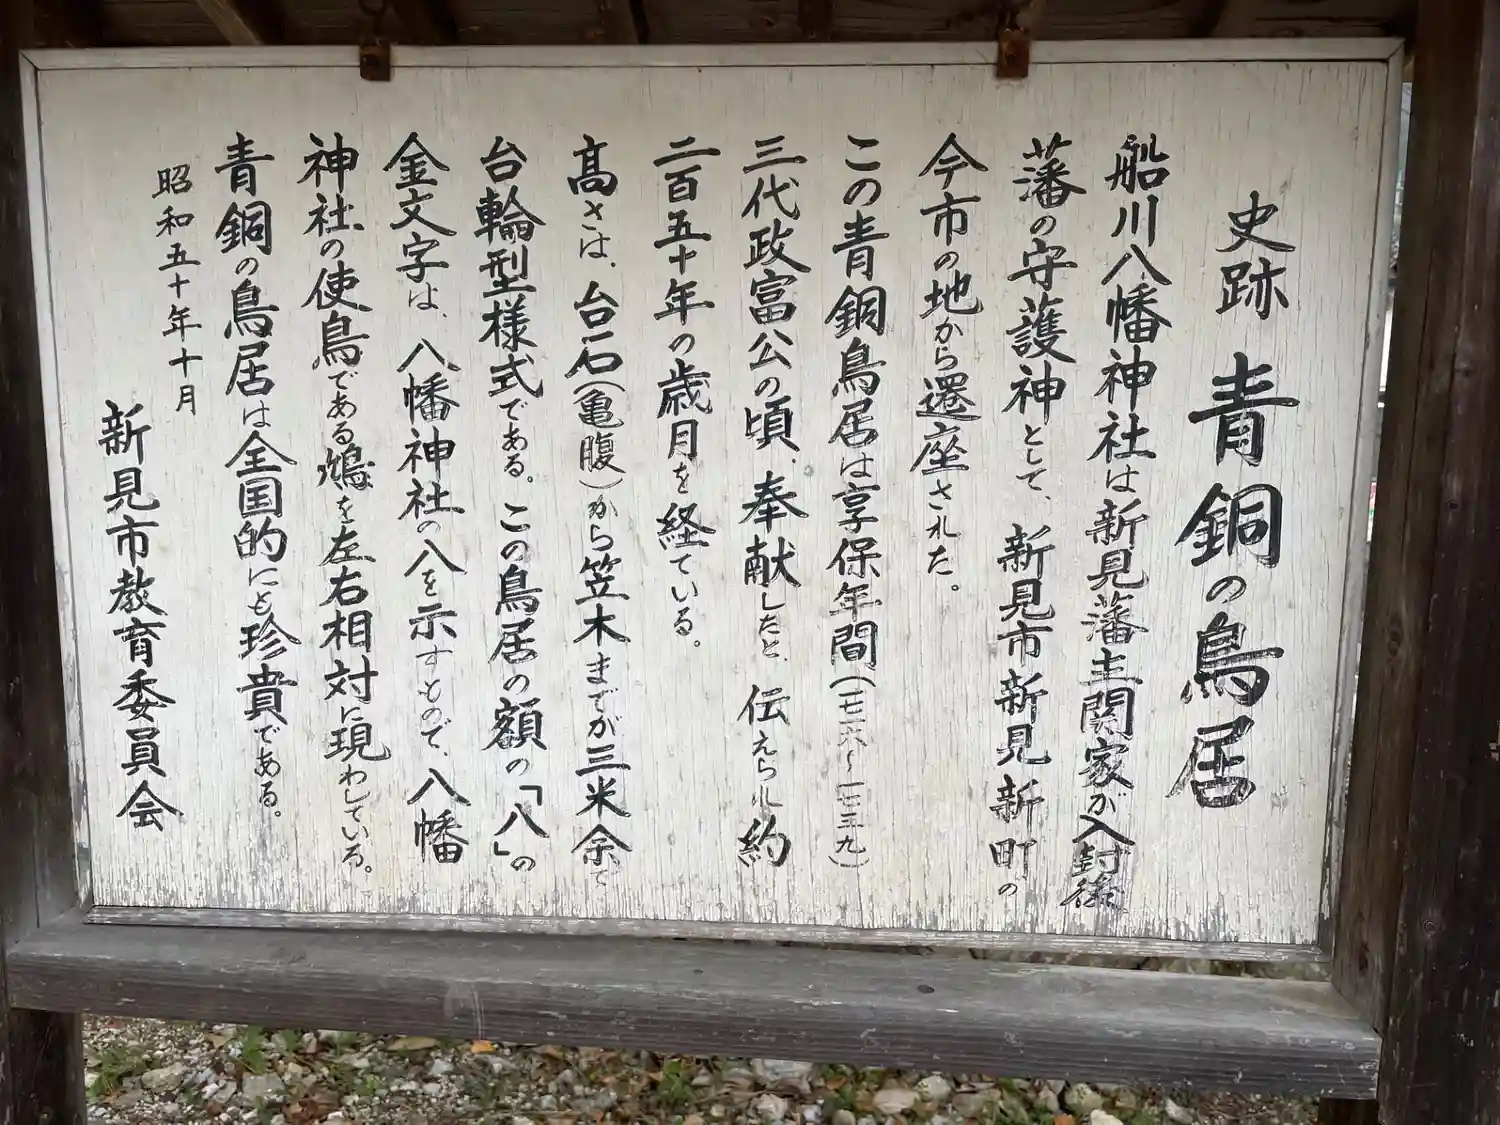 史跡 青銅の鳥居
船川八幡神社は新見藩主関家が入封後
藩の守護神として、新見市新見新町の
今市の地から遷座された。
この青銅鳥居は享保年間（一七二六～一七三九）
三代政富公の頃、奉献したと、伝えられ約
二百五十年の歳月を経ている。
高さは、台石（亀腹）から笠木までが三米余で
台輪型様式である。この鳥居の額の「八」の
金文字は、八幡神社の八を示すもので、八幡
神社の使鳥である鳩を左右相対に現わしている。
青銅の鳥居は全国的にも珍貴である。
昭和五十年十月
新見市教育委員会